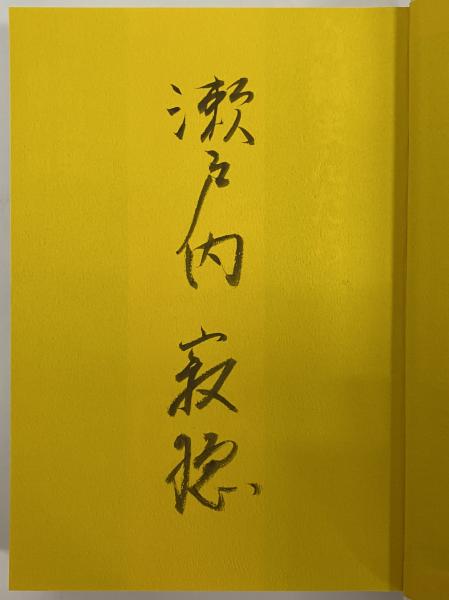 瀬戸内 寂聴